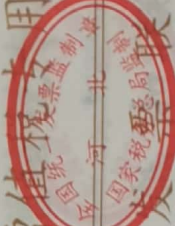 全国统一发票监制章
河北
国家税务总局监制
发票联